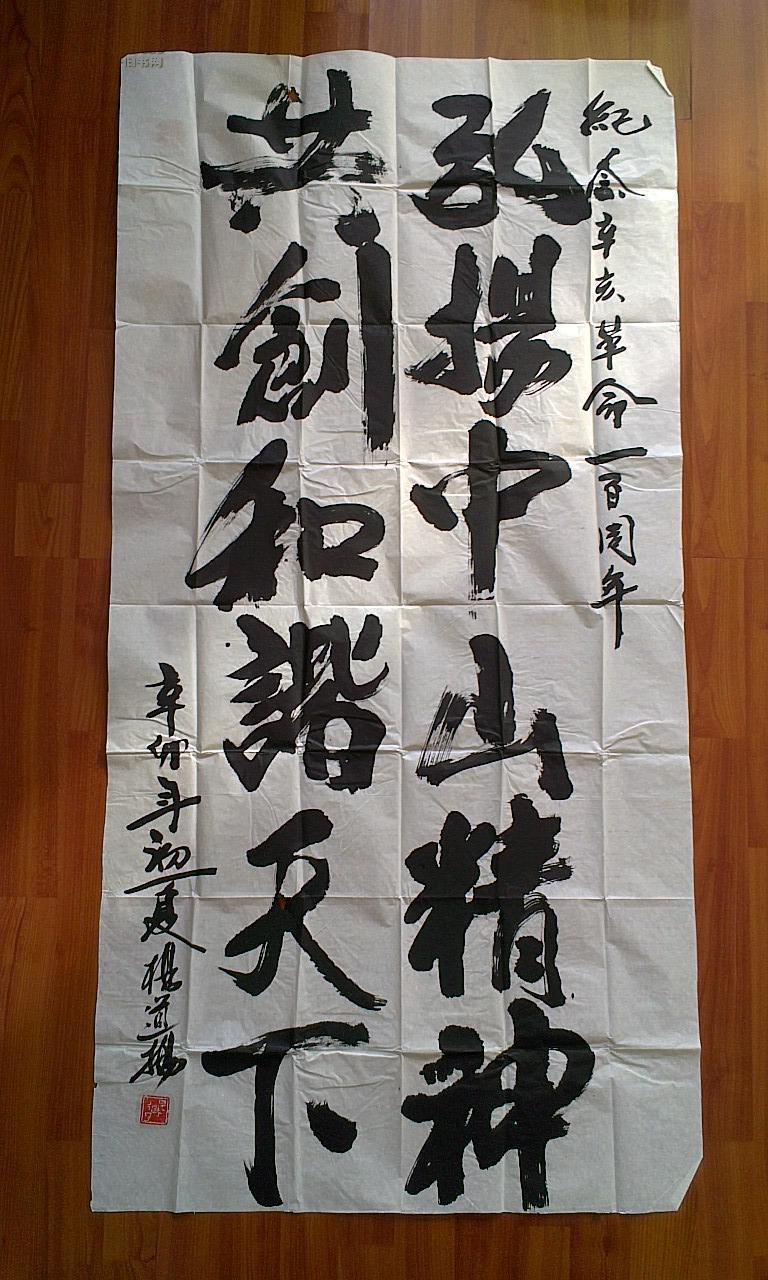 紀念辛亥革命一百周年
弘揚中山精神
共創和諧天下
辛卯年初夏楊道
旧书网